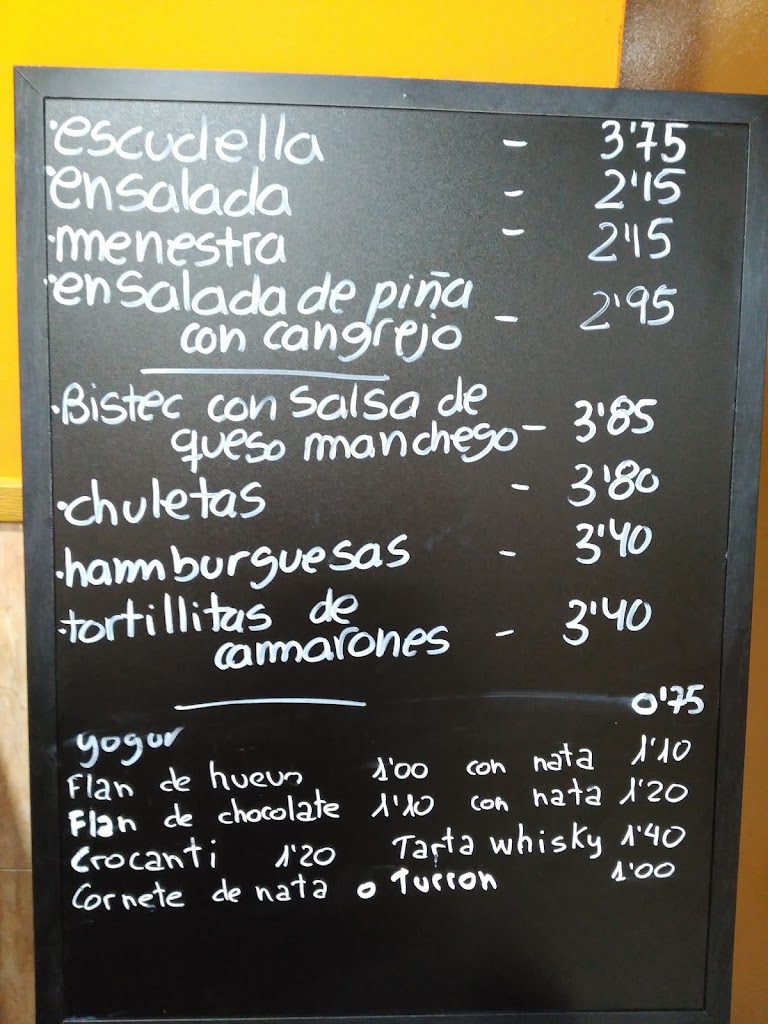 ·escudella - 3'75
·ensalada - 2'15
·menestra - 2'15
·ensalada de piña
con cangrejo - 2'95
·Bistec con salsa de
queso manchego - 3'85
·chuletas - 3'80
·hamburguesas - 3'40
·tortillitas de
camarones - 3'40
yogur 0'75
Flan de huevo 1'00 con nata 1'10
Flan de chocolate 1'10 con nata 1'20
Crocanti 1'20 Tarta whisky 1'40
Cornete de nata o Turron 1'00